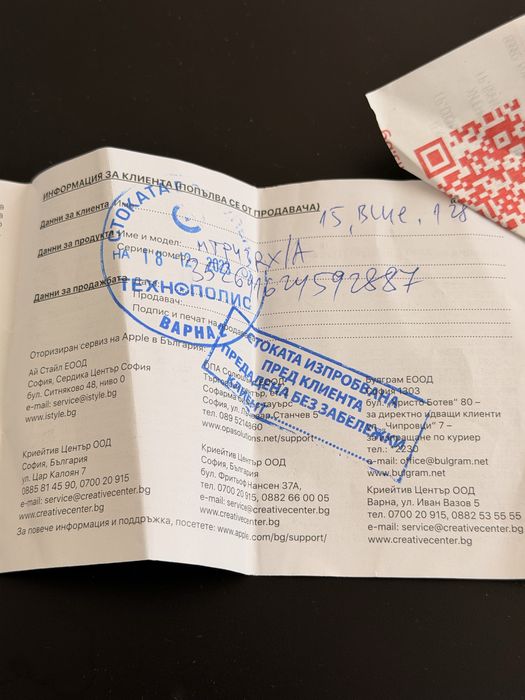 ИНФОРМАЦИЯ ЗА КЛИЕНТА (ПОПЪЛВА СЕ ОТ ПРОДАВАЧА)
Данни за клиента Име:
15, BLUE, 128
Данни за продукта Име и модел: MTP43RX/A
Сериен номер:
Данни за продажбата Дата
Продавач:
Подпис и печат на продавача
СТОКАТА
НА 18 12 2023
ТЕХНОПОЛИС
ВАРНА 2
СТОКАТА ИЗПРОБВАНА
ПРЕД КЛИЕНТА
ПРЕДАДЕНА БЕЗ ЗАБЕЛЕЖКИ
КЛИЕНТ
Оторизиран сервиз на Apple в България:
Ай Стайл ЕООД
София, Сердика Център София
бул. Ситняково 48, ниво 0
e-mail: service@istyle.bg
www.istyle.bg
София, ул. Станчев 5
www.opasolutions.net/support
Булграм ЕООД
София 1303
бул. "Христо Ботев" 80 –
за директно идващи клиенти
ул. "Чипровци" 7 –
за изпращане по куриер
e-mail: office@bulgram.net
www.bulgram.net
Криейтив Център ООД
София, България
ул. Цар Калоян 7
0885 81 45 90, 0700 20 915
e-mail: service@creativecenter.bg
www.creativecenter.bg
Криейтив Център ООД
София, България
бул. Фритьоф Нансен 37А,
тел. 0700 20 915, 0882 66 00 05
e-mail: service@creativecenter.bg
www.creativecenter.bg
Криейтив Център ООД
Варна, ул. Иван Вазов 5
тел. 0700 20 915, 0882 53 55 55
e-mail: service@creativecenter.bg
www.creativecenter.bg
За повече информация и поддръжка, посетете: www.apple.com/bg/support/